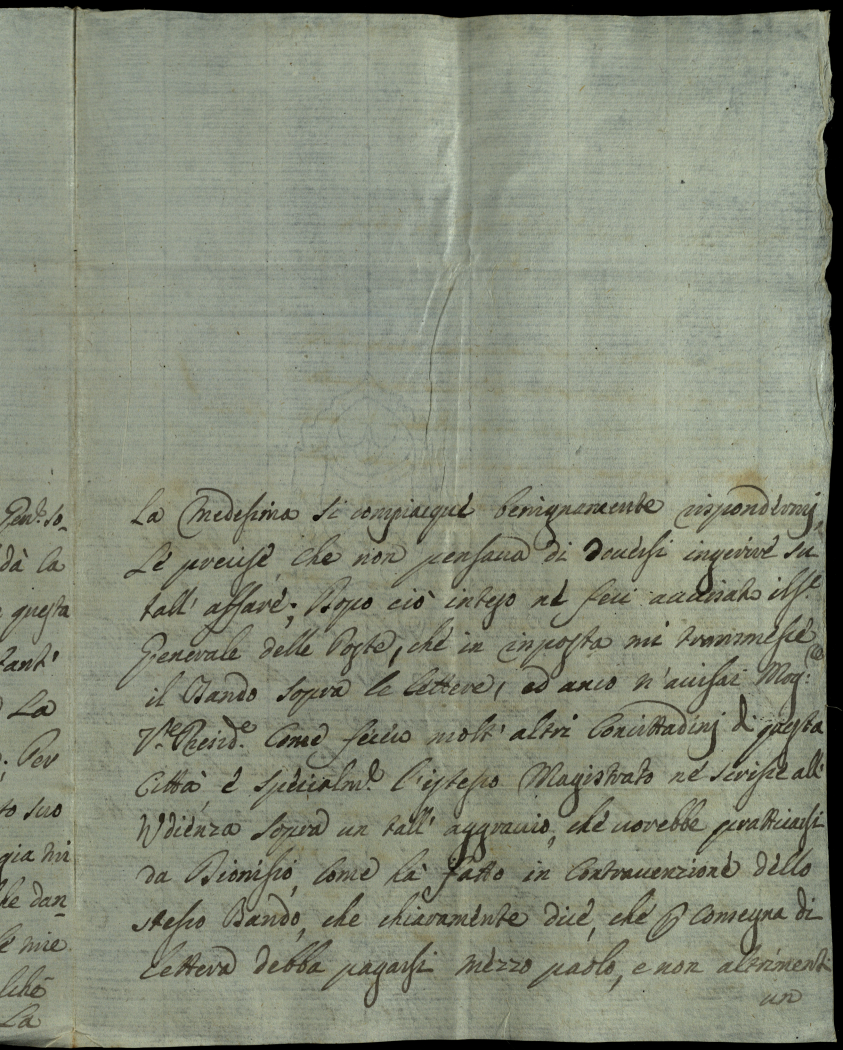 Gen.e so-
dà la
questa
tant'
La
Per
to suo
gia mi
he dan-
le mie
La
La Medesima si compiacque benignamente rispondermj,
Le precise, che non pensava di doversi ingerire su
tall' affare; Dopo ciò inteso né feci avvisato il Sr.e
Generale delle Poste, ché in risposta mi trasmesse
il Bando sopra le lettere, ed anco n'avisai Mog:re
V.e Presid.e Come fecero molt' altri Concittadinj di questa
Città é spécialm.e l'istesso Magistrato né scrisse all'
Udiénza sopra un tall' aggravio, ché vorebbe pratticarsi
da Dionisio, Come hà fatto in Contravenzioné déllo
stesso Bandó, che chiaraménte dicé, ché p Consegna di
Letterà débba pagarsi mézzo paolo, e non altriménti
un